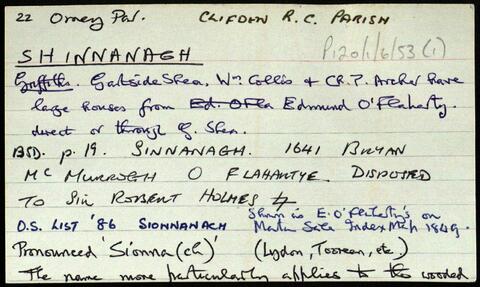 22 Omey Par. CLIFDEN R.C. PARISH
P120/1/6/53 (1)
SHINNANAGH
Griffiths. Gartside Shea, Wm Collis & Ch. P. Archer have
large houses from Ed. O Fla Edmund O'Flaherty.
direct or through G. Shea.
BSD. p.19. SINNANAGH. 1641 BRYAN
MC MURROGH O FLAHARTYE DISPOSED
TO SIR ROBERT HOLMES
O.S. LIST '86 SIONNANACH Shown is E. O'Flaherty's on
Martin Sale Index Map 1849.
Pronounced 'Sionna(ch)' (Lydon, Tooreen, etc)
The name more particularly applies to the wooded